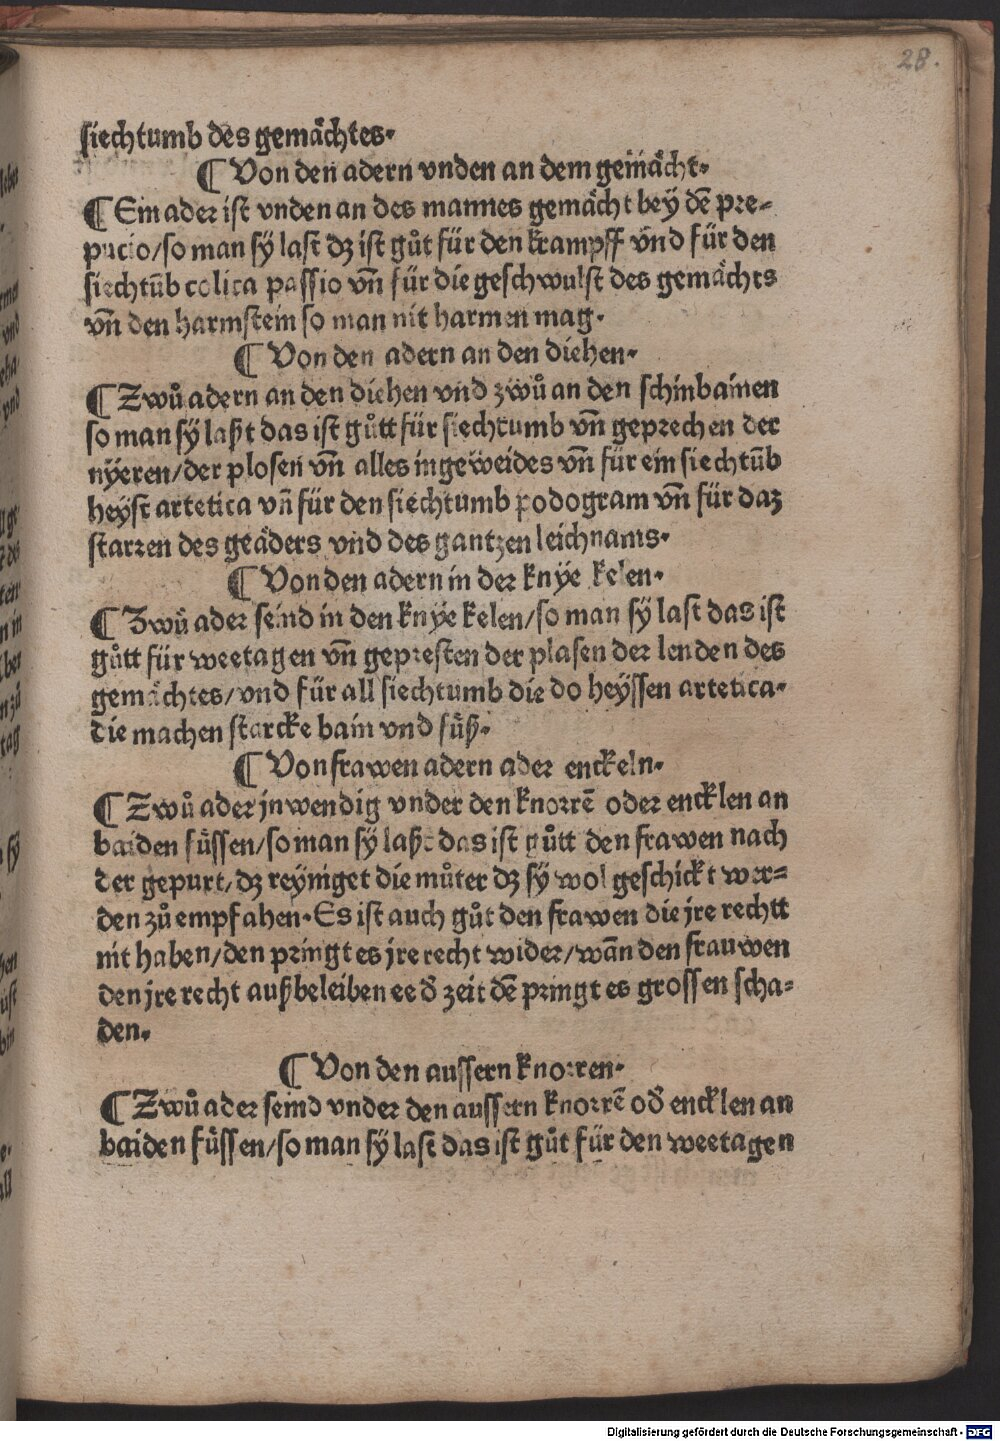 28.
siechtumb des gemaͤchtes.
¶ Von den adern vnden an dem gemaͤcht.
¶ Ein ader ist vnden an des mannes gemaͤcht bey dē pre-
pucio/so man sÿ last dz ist gůt für den krampff vnd für den
siechtūb colica passio vn̄ für die geschwulst des gemaͤchts
vn̄ den harmstein so man nit harmen mag.
¶ Von den adern an den diehen.
¶ Zwů adern an den diehen vnd zwů an den schinbainen
so man sÿ laßt das ist gůtt für siechtumb vn̄ geprechen der
nÿeren/der plosen vn̄ alles ingeweides vn̄ für ein siechtūb
heyst artetica vn̄ für den siechtumb podogram vn̄ für daz
starren des geaͤders vnd des gantzen leichnams.
¶ Von den adern in der knÿe kelen.
¶ Zwů ader seind in den knÿe kelen/so man sÿ last das ist
gůtt für weetagen vn̄ gepresten der plasen der lenden des
gemaͤchtes/vnd für all siechtumb die do heyssen artetica.
die machen starcke bain vnd fuͤß.
¶ Von frawen adern ader enckeln.
¶ Zwů ader jnwendig vnder den knorrē oder encklen an
baiden fuͤssen/so man sÿ laßt das ist gůtt den frawen nach
der gepurt/dz reyniget die můter dz sÿ wol geschickt wer-
den zů empfahen. Es ist auch gůt den frawen die jre rechtt
nit haben/den pringt es jre recht wider/wan̄ den frauwen
den jre recht außbeleiben ee d̄ zeit dē pringt es grossen scha-
den.
¶ Von den aussern knorren.
¶ Zwů ader seind vnder den aussern knorrē od̄ encklen an
baiden fuͤssen/so man sÿ last das ist gůt für den weetagen
Digitalisierung gefördert durch die Deutsche Forschungsgemeinschaft - DFG